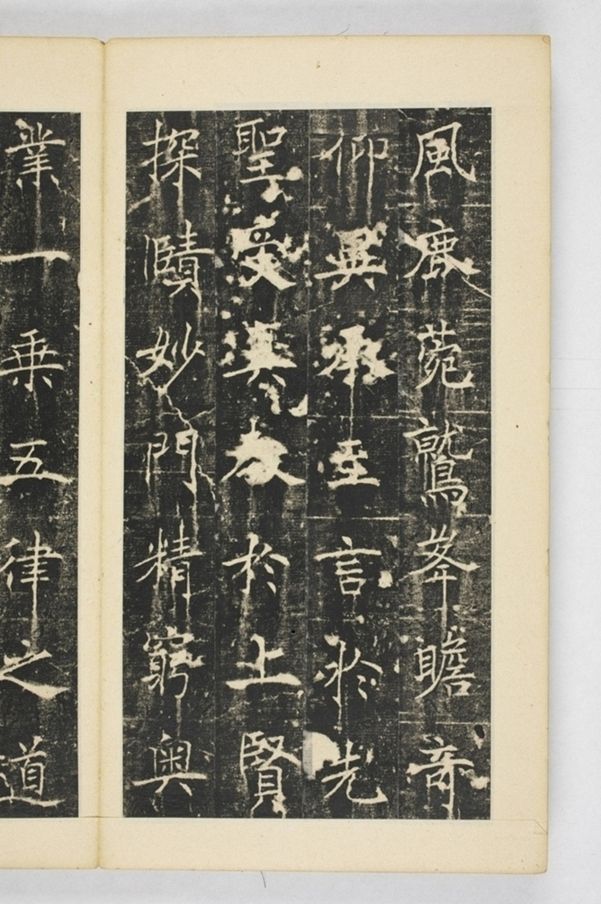 風鹿菀鷲峯瞻奇
仰異承至言於先
聖受真教於上賢
探賾妙門精窮奥
業一乘五律之道